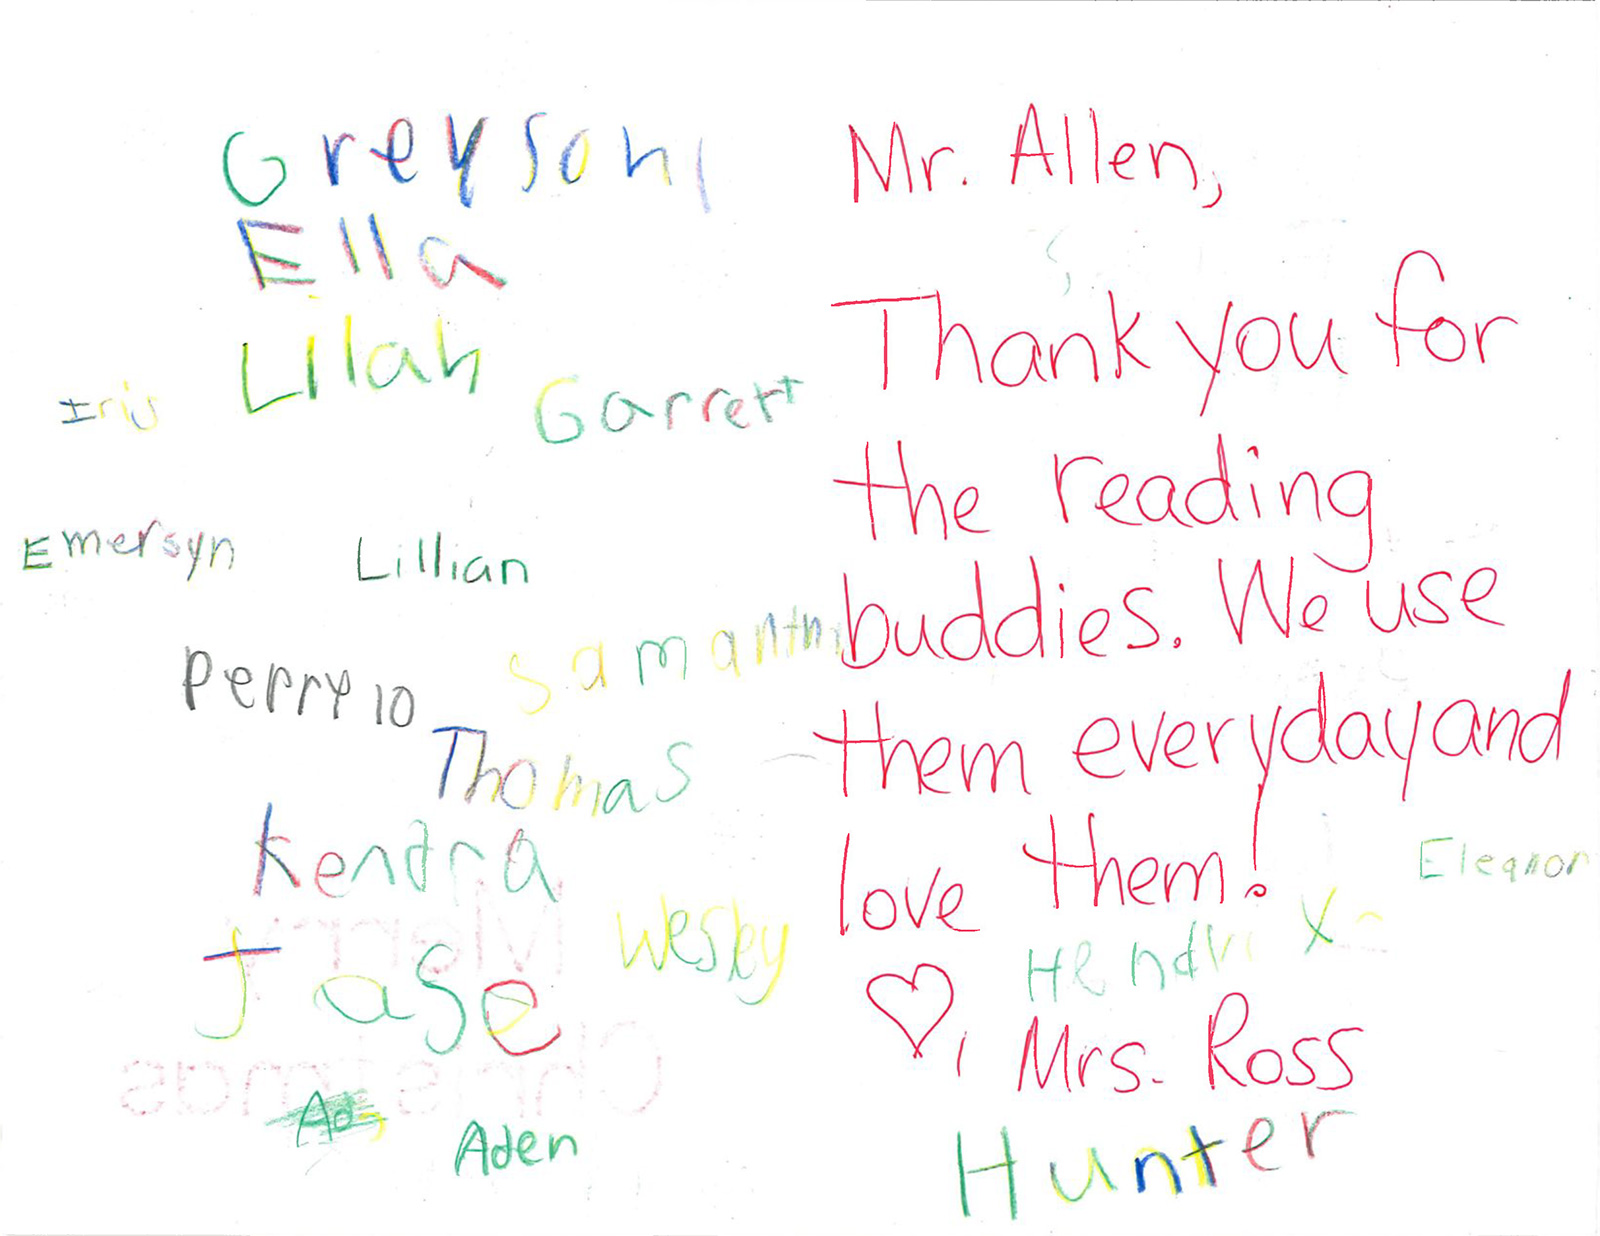 Greyson
Ella
Lilah
Iris
Garrett
Emersyn
Lillian
Perry 10
Samantha
Thomas
Kendra
Wesley
Jase
Aden
Mr. Allen,
Thank you for
the reading
buddies. We use
them everyday and
love them!
Eleanor
Hendrix
Mrs. Ross
Hunter
Merry
Christmas